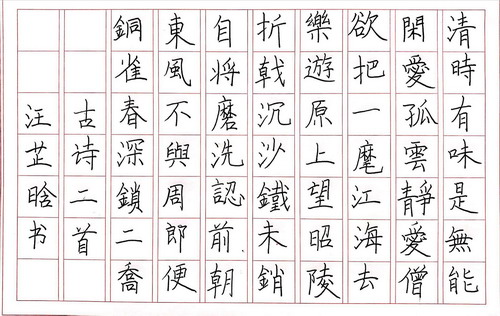 清時有味是無能
閑愛孤雲靜愛僧
欲把一麾江海去
樂遊原上望昭陵
折戟沉沙鐵未銷
自将磨洗認前朝
東風不與周郎便
銅雀春深鎖二喬
古诗二首
汪芷晗书